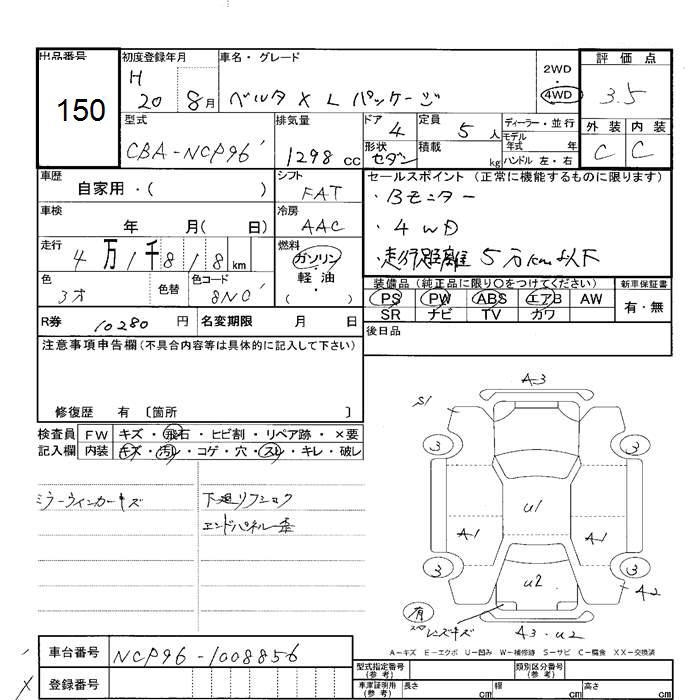 出品番号 初度登録年月 車名・グレード 評価点
150 H 20 8月 ベルタ X L パッケージ 2WD・4WD 3.5
型式 排気量 ドア 4 定員 5人 ディーラー・並行 外装 内装
CBA-NCP96 1298 cc 形状 セダン 積載 kg モデル年式 年 ハンドル 左・右 C C
車歴 自家用・( ) シフト FAT セールスポイント(正常に機能するものに限ります)
車検 年 月( 日) 冷房 AAC ・Bモニター
・4WD
走行 4万1千818km 燃料 ガソリン・軽油・( ) ・走行距離5万km以下
色 3オ 色替 色コード 8NC 装備品(純正品に限り○をつけてください) 新車保証書
PS PW ABS エアB AW 有・無
SR ナビ TV カワ
R券 10280 円 名変期限 月 日 後日品
注意事項申告欄(不具合内容等は具体的に記入して下さい)
修復歴 有 〔箇所 〕
検査員 FW キズ・飛石・ヒビ割・リペア跡・×要
記入欄 内装 キズ・汚レ・コゲ・穴・スレ・キレ・破レ
ミラーウィンカーキズ 下廻リフション
エンドパネル歪
A-3
S1
3 3
U1
A-1 A-1
3 3
U2 A-2
有
レンズキズ
A3・U2
A-キズ E-エクボ U-凹み W-補修跡 S-サビ C-腐食 XX-交換済
車台番号 NCP96-1008856
登録番号
型式指定番号(参考) 類別区分番号(参考)
車庫証明用(参考) 長さ cm 幅 cm 高さ cm